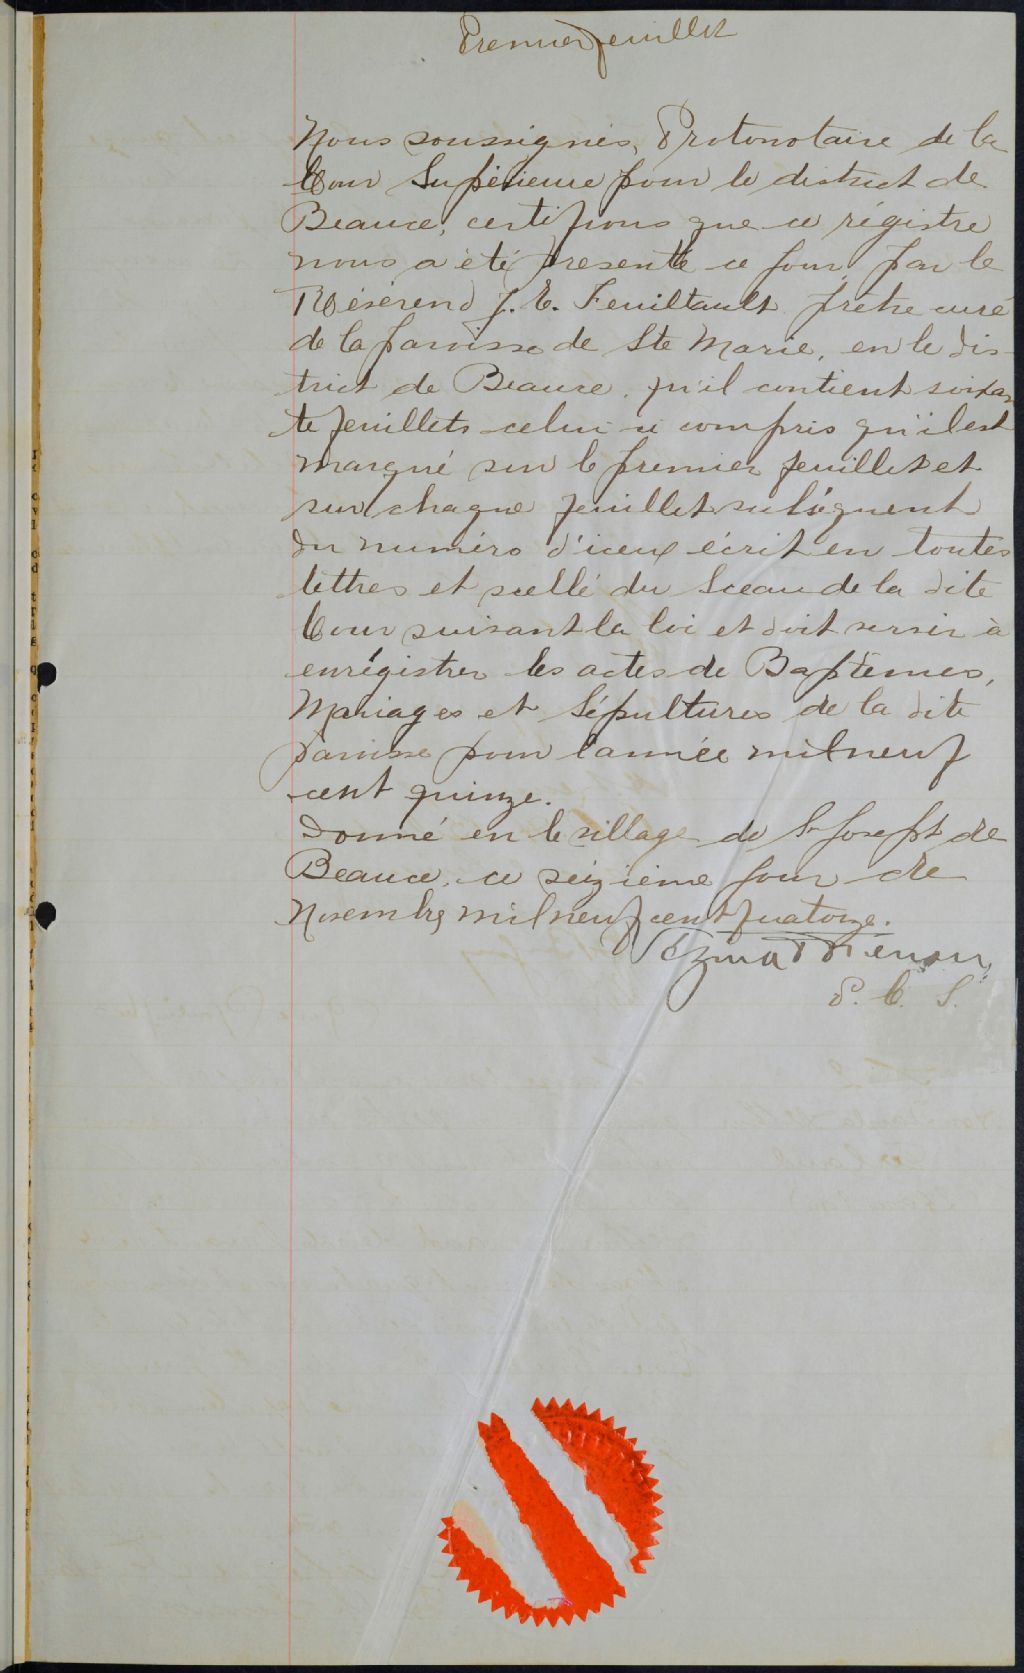 Premier feuillet
Nous soussignés, Protonotaire de la
Cour Supérieure pour le district de
Beauce, certifions que ce régistre
nous a été présenté ce jour par le
Révérend J. E. Feuiltault prêtre curé
de la paroisse de Ste Marie, en le dis-
trict de Beauce. qu'il contient soixan
te feuillets celui ci compris qu'il est
marqué sur le premier feuillet et
sur chaque feuillet subséquent
du numéro d'iceux écrit en toutes
lettres et scellé du Sceau de la dite
Cour suivant la loi et doit servir à
enrégistrer les actes de Baptêmes,
Mariages et Sépultures de la dite
paroisse pour l'année mil neuf
cent quinze.
Donné en le village de St Joseph de
Beauce, ce seizième jour de
Novembre mil neuf cent quatorze.
P. C. S.